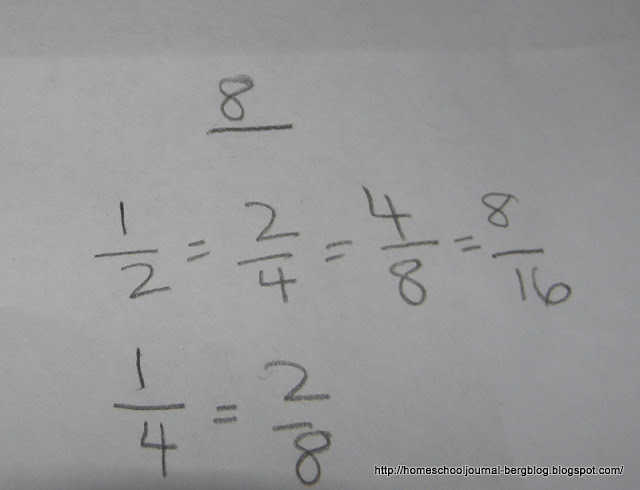 8
1/2 = 2/4 = 4/8 = 8/16
1/4 = 2/8
http://homeschooljournal-bergblog.blogspot.com/